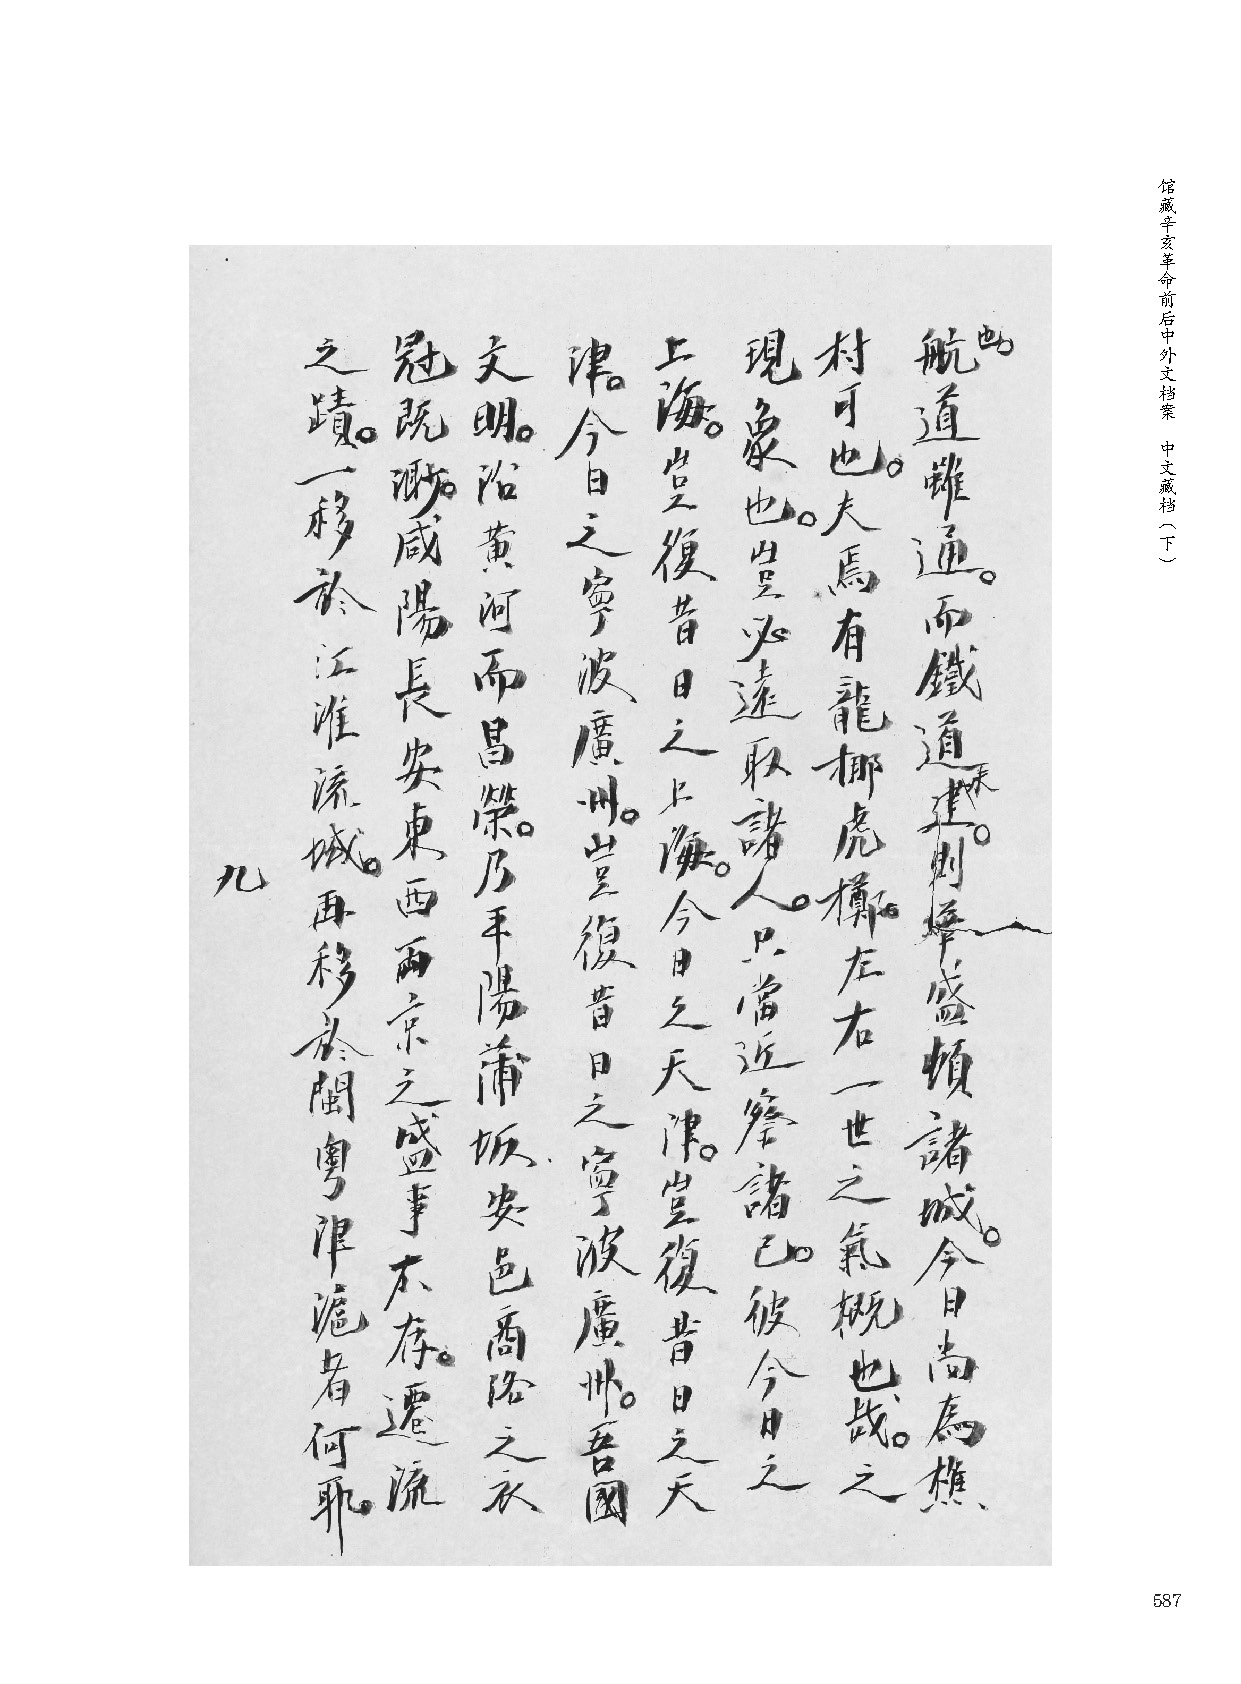 馆藏辛亥革命前后中外文档案 中文藏档（下）
也。
航道雖通。而鐵道未建。則華盛頓諸城。今日尚為樵
村可也。夫焉有龍挪虎擲。左右一世之氣概也哉。之
現象也。豈必遠取諸人。只當近察諸己。彼今日之
上海。豈復昔日之上海。今日之天津。豈復昔日之天
津。今日之寧波廣州。豈復昔日之寧波廣州。吾國
文明。沿黃河而昌榮。乃平陽蒲坂安邑商洛之衣
冠既渺。咸陽長安東西兩京之盛事不存。遷流
之蹟。一移於江淮流域。再移於閩粵津滬者何耶。
九
587